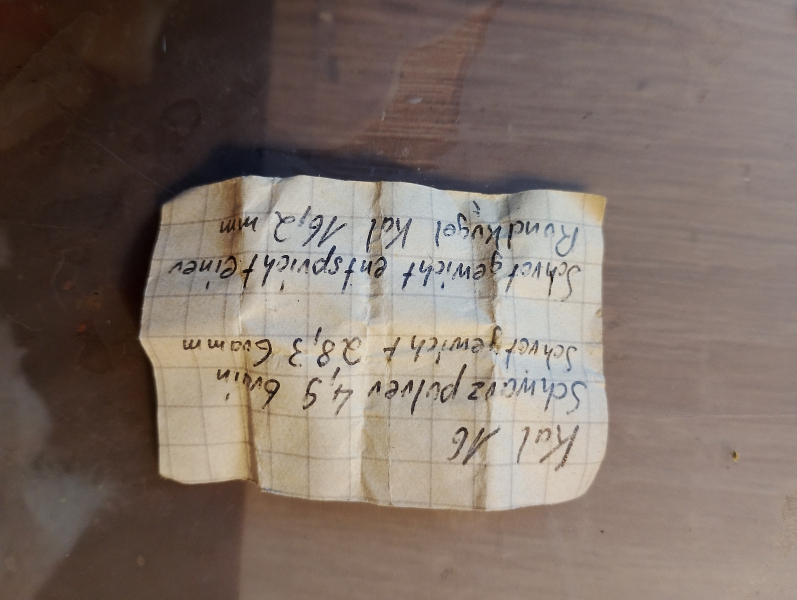 Kal 16
Schwarzpulver 4,9 Grain
Schrotgewicht 28,3 Gramm
Schrotgewicht entspricht einer
Rundkugel Kal 16,2 mm